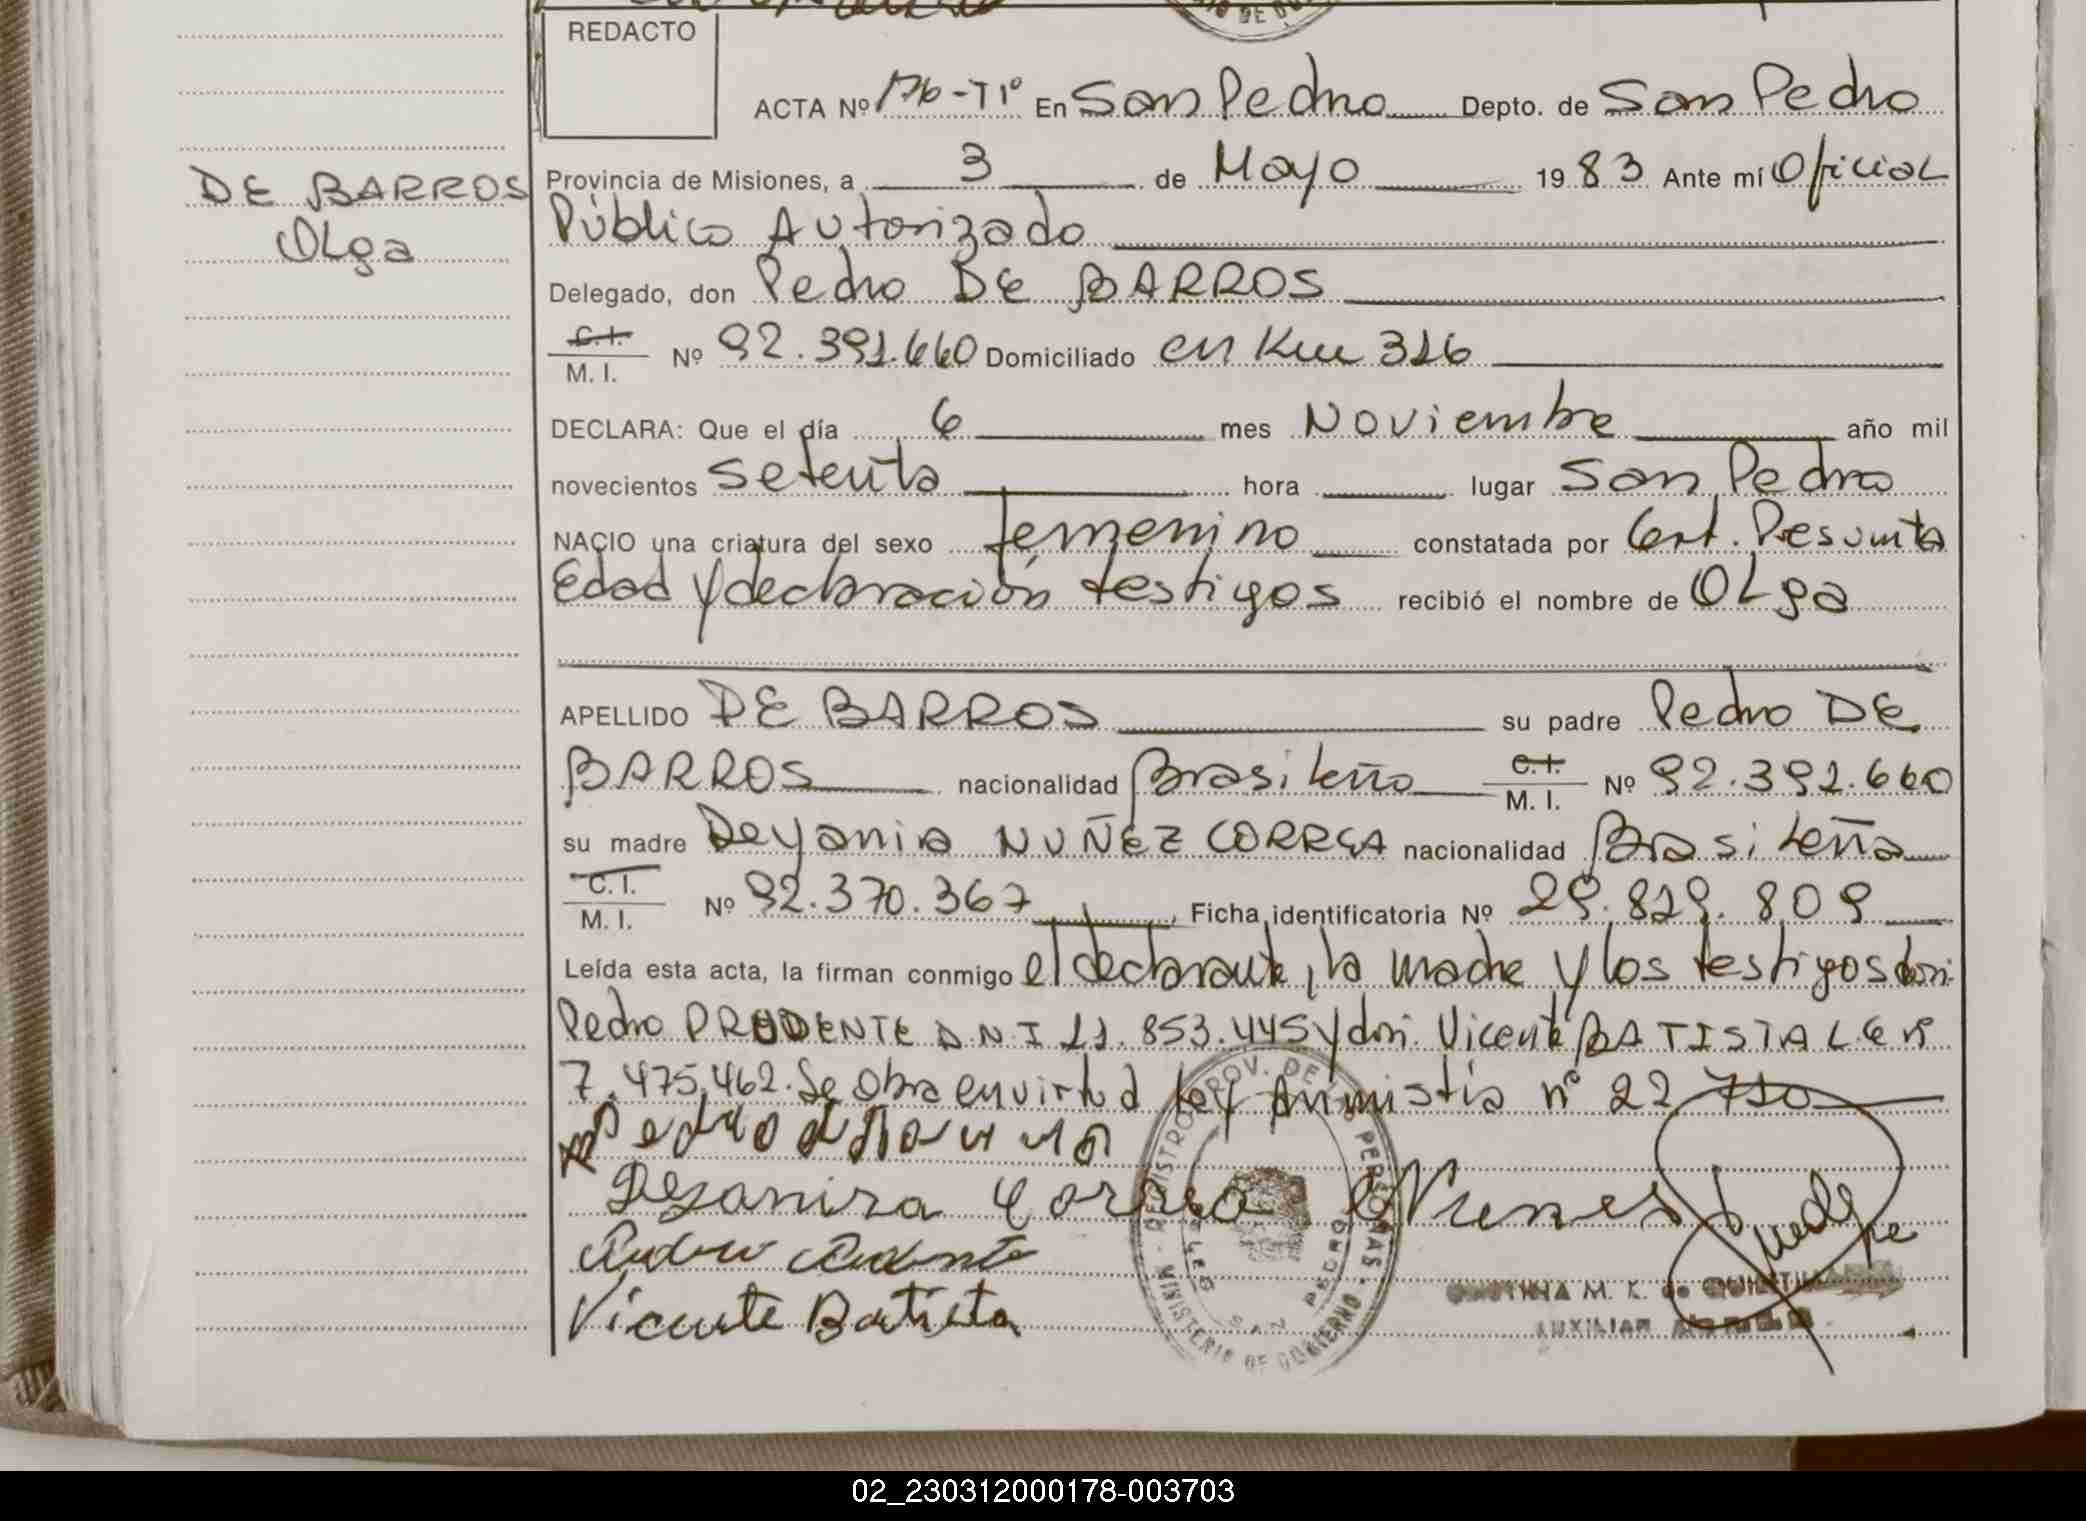 REDACTO
ACTA Nº 176-T1º En San Pedro Depto. de San Pedro
DE BARROS
Olga
Provincia de Misiones, a 3 de Mayo 1983 Ante mí Oficial
Público Autorizado
Delegado, don Pedro DE BARROS
C.I. / M. I. Nº 92.391.660 Domiciliado en Km 316
DECLARA: Que el día 6 mes Noviembre año mil
novecientos setenta hora lugar San Pedro
NACIO una criatura del sexo femenino constatada por Cert. Presunta
Edad y declaración testigos recibió el nombre de Olga
APELLIDO DE BARROS su padre Pedro DE
BARROS nacionalidad Brasileño C.I. / M. I. Nº 92.391.660
su madre Deyanira NUÑEZ CORREA nacionalidad Brasileña
C.I. / M. I. Nº 92.370.367, Ficha identificatoria Nº 29.829.809
Leída esta acta, la firman conmigo el declarante, la madre y los testigos don:
Pedro PRUDENTE D.N.I 11.853.445 y don: Vicente BATISTA L.E nº
7.475.462. Se obra en virtud ley Amnistía nº 22 710
Deyanira Correa Nunes
Vicente Batista
REGISTRO PROV. DE LAS PERSONAS
MINISTERIO DE GOBIERNO
SAN PEDRO
M. K. de
AUXILIAR
02_230312000178-003703